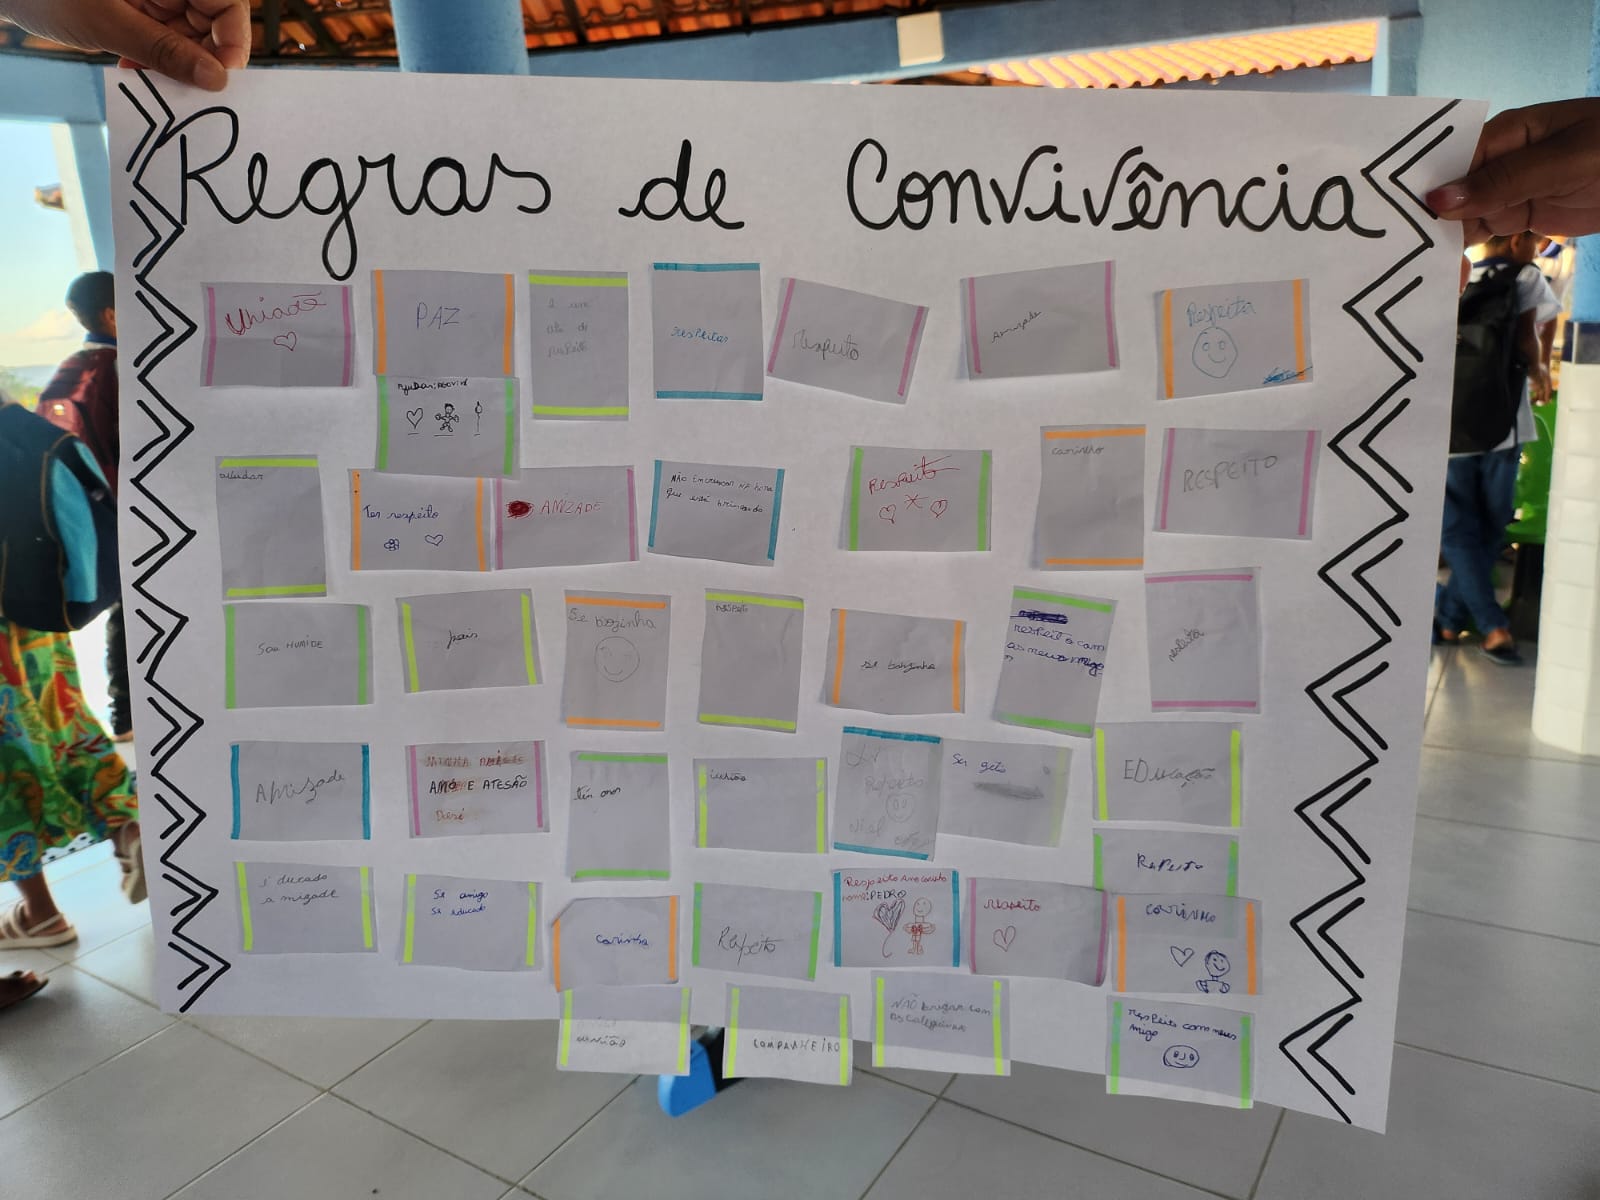 Regras de Convivência
Uniaõ
PAZ
é um
ato de
respeito
respeitar
Respeito
Amizade
Respeito
Ajudar
Ter respeito
AMIZADE
NÃO EM NA hora
que está brincando
Respeito
carinho
RESPEITO
Sou HUMIDE
pais
Se bozinho
respeito
se bozinho
respeito com
as meus amigo
respeito
Amizade
AMO E ATESÃO
ter amor
união
Respeito
Ser
EDucação
RePeito
é ducado
a mizade
Se amigo
Se educado
carinho
Respeito
Respeito
nome: PEDRO
respeito
carinho
união
COMPANHEIRO
NÃO brigar com
os coleguinha
resPeito com meus
Amigo